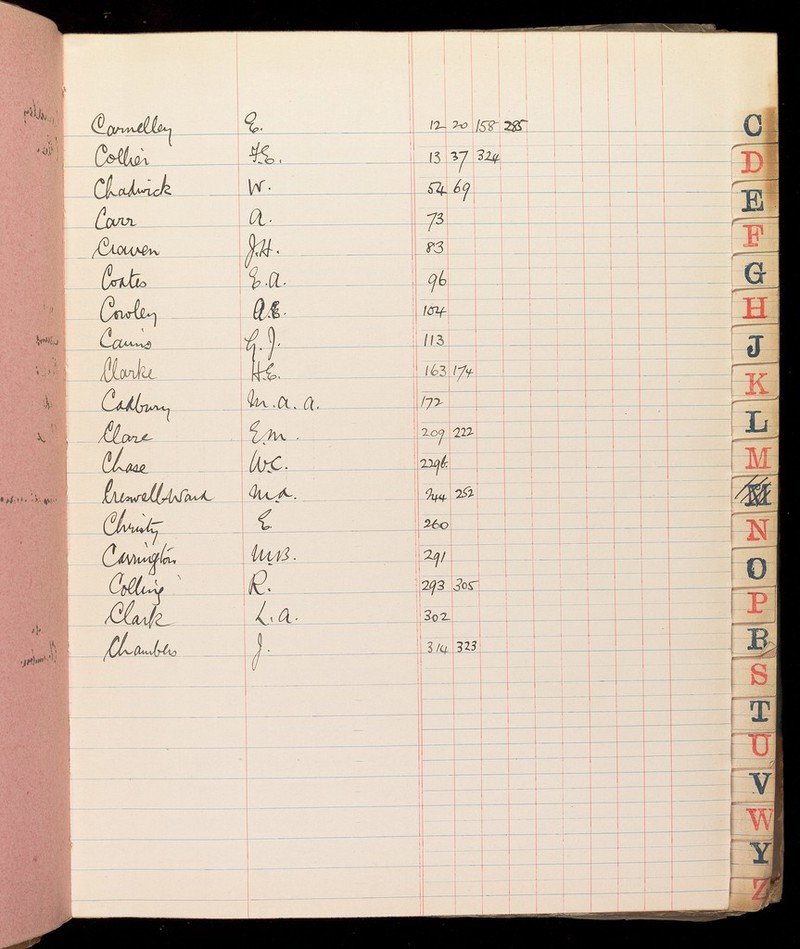 Carnelley E. 12 20 158 285
Collier F.E. 13 37 324
Chadwick W. 54 69
Carr A. 73
Craven J.H. 83
Coates E.A. 96
Cowley A.E. 104
Cairns G.J. 113
Clarke H.E. 163 174
Cadbury M.A.A. 172
Clare E.M. 209 222
Chase W.C.
Creswell-Ward M.A. 244 252
Christy E 260
Carrington M.B. 291
Colling R. 293 305
Clark L.A. 302
Chambers J. 314 323
C
D
E
F
G
H
J
K
L
M
M
N
O
P
R
S
T
U
V
W
Y
Z